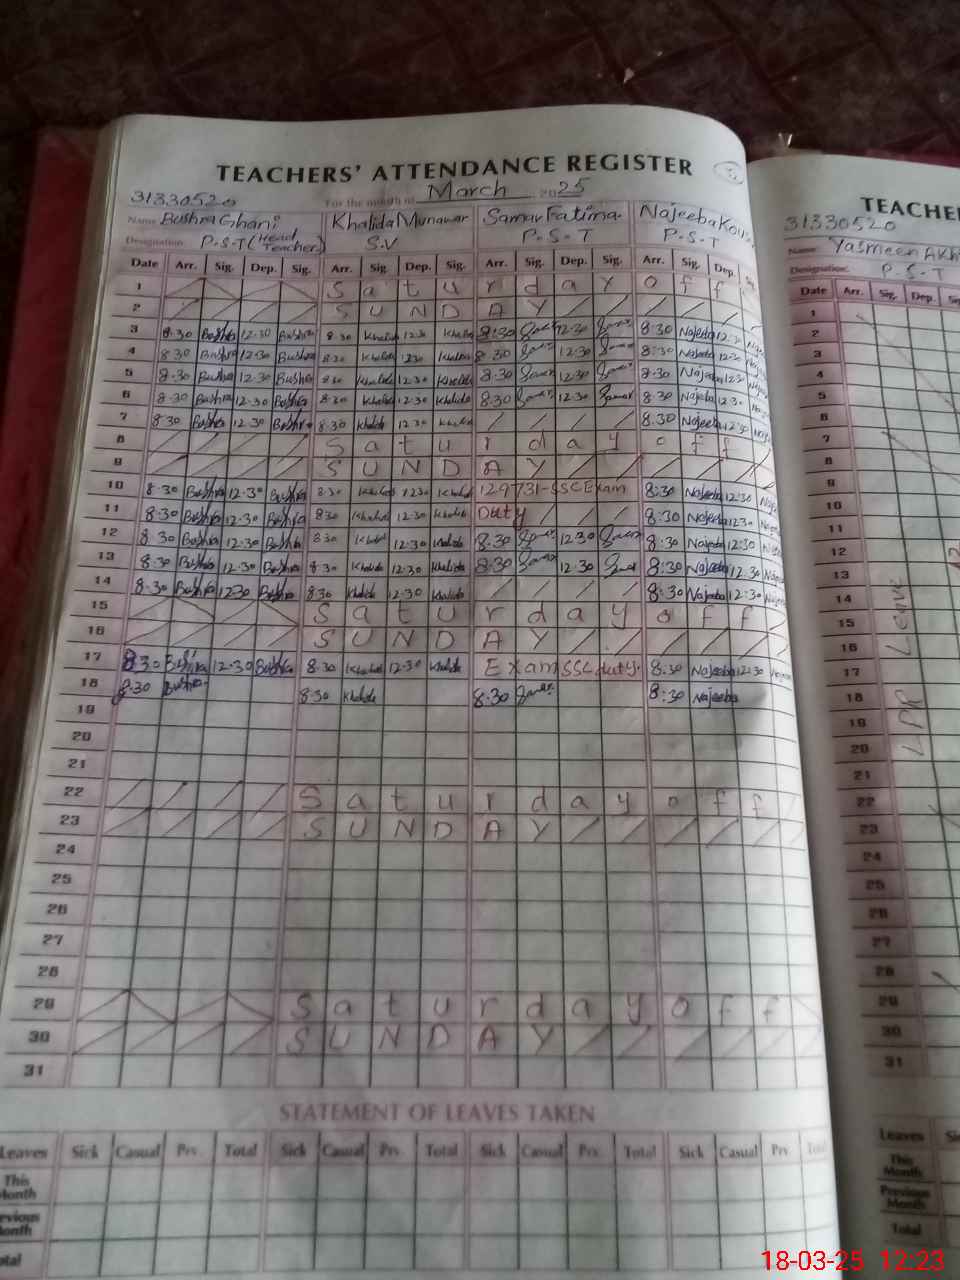 TEACHERS' ATTENDANCE REGISTER
31330520 For the month of March 2025
Name Bushra Ghani Khalida Munawar Samar Fatima Najeeba
Designation P-S-T (Head Teacher) S.V P-S-T P-S-T
Date Arr. Sig. Dep. Sig. Arr. Sig. Dep. Sig. Arr. Sig. Dep. Sig. Arr. Sig. Dep. Sig.
1 Saturday off
2 SUNDAY
3 8.30 Bushra 12.30 Bushra 8.30 Khalida 12.30 Khalida 8:30 12:30 8:30 Najeeba 12:30
4 8.30 Bushra 12.30 Bushra 8.30 Khalida 12.30 Khalida 8.30 12:30 8:30 Najeeba 12:30
5 8.30 Bushra 12.30 Bushra 8.30 Khalida 12.30 Khalida 8.30 12:30 8.30 Najeeba 12:30
6 8.30 Bushra 12.30 Bushra 8.30 Khalida 12.30 Khalida 8:30 12:30 Samar 8:30 Najeeba 12:30
7 8.30 Bushra 12.30 Bushra 8.30 Khalida 12.30 Khalida 8.30 Najeeba 12:30
8 Saturday off
9 SUNDAY
10 8.30 Bushra 12.30 Bushra 8.30 Khalida 12.30 Khalida 129731-SSC Exam 8:30 Najeeba 12:30
11 8.30 Bushra 12.30 Bushra 8.30 Khalida 12.30 Khalida Duty 8:30 Najeeba 12:30
12 8.30 Bushra 12.30 Bushra 8.30 Khalida 12.30 Khalida 8:30 12:30 8:30 Najeeba 12:30
13 8.30 Bushra 12.30 Bushra 8.30 Khalida 12.30 Khalida 8:30 12:30 8:30 Najeeba 12.30
14 8.30 Bushra 12.30 Bushra 8.30 Khalida 12.30 Khalida 8:30 Najeeba 12:30
15 Saturday off
16 SUNDAY
17 8.30 Bushra 12.30 Bushra 8.30 Khalida 12.30 Khalida Exam SSC duty. 8:30 Najeeba 12:30
18 8.30 Bushra 8.30 Khalida 8:30 8:30 Najeeba
19
20
21
22 Saturday off
23 SUNDAY
24
25
26
27
28
29 Saturday off
30 SUNDAY
31
STATEMENT OF LEAVES TAKEN
Leaves Sick Casual Prv. Total Sick Casual Prv. Total Sick Casual Prv. Total Sick Casual Prv. Total
This Month
Previous Month
Total
TEACHE
31330520
Name: Yasmeen Akh
Designation: P S T
Date Arr. Sig. Dep.
1
2
3
4
5
6
7
8
9
10
11
12
13
14
15
16
17
18
19
20
21
22
23
24
25
26
27
28
29
30
31
LPR Leave
Leaves
This Month
Previous Month
Total
18-03-25 12:23